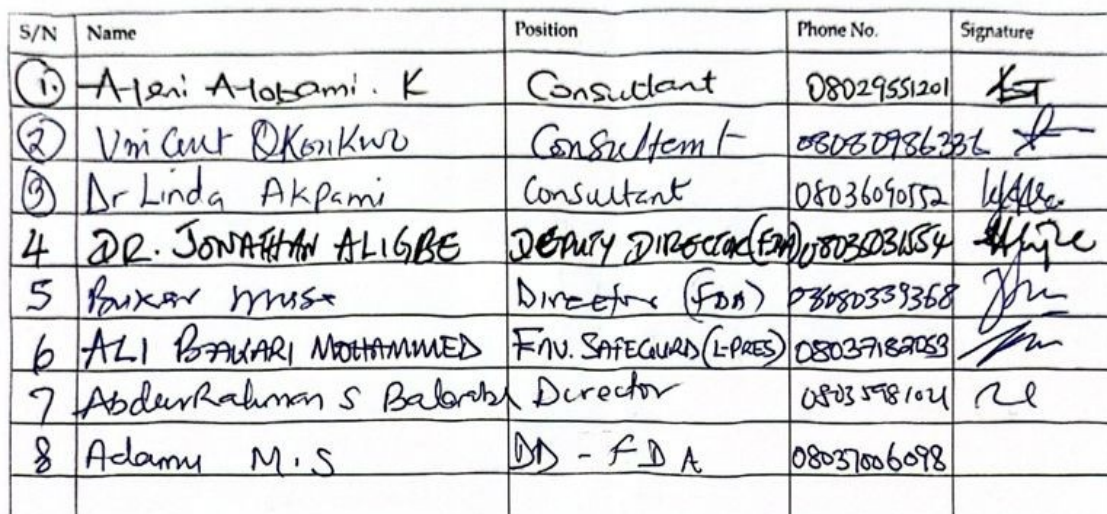 S/N Name Position Phone No. Signature
1. Consultant 08029551201
2 Vincent Okonkwo Consultant 08080986336
3 Dr Linda Akpami Consultant 08036090552
4 DR. JONATHAN ALIGBE DEPUTY DIRECTOR (FDA)
5 Director (FDA) 08080339368
6 ALI BAKARI MOHAMMED ENV. SAFEGUARD (L-PRES) 08037182053
7 AbdurRahman S Director 08035981021
8 Adamu M.S DD - FDA 08037006098